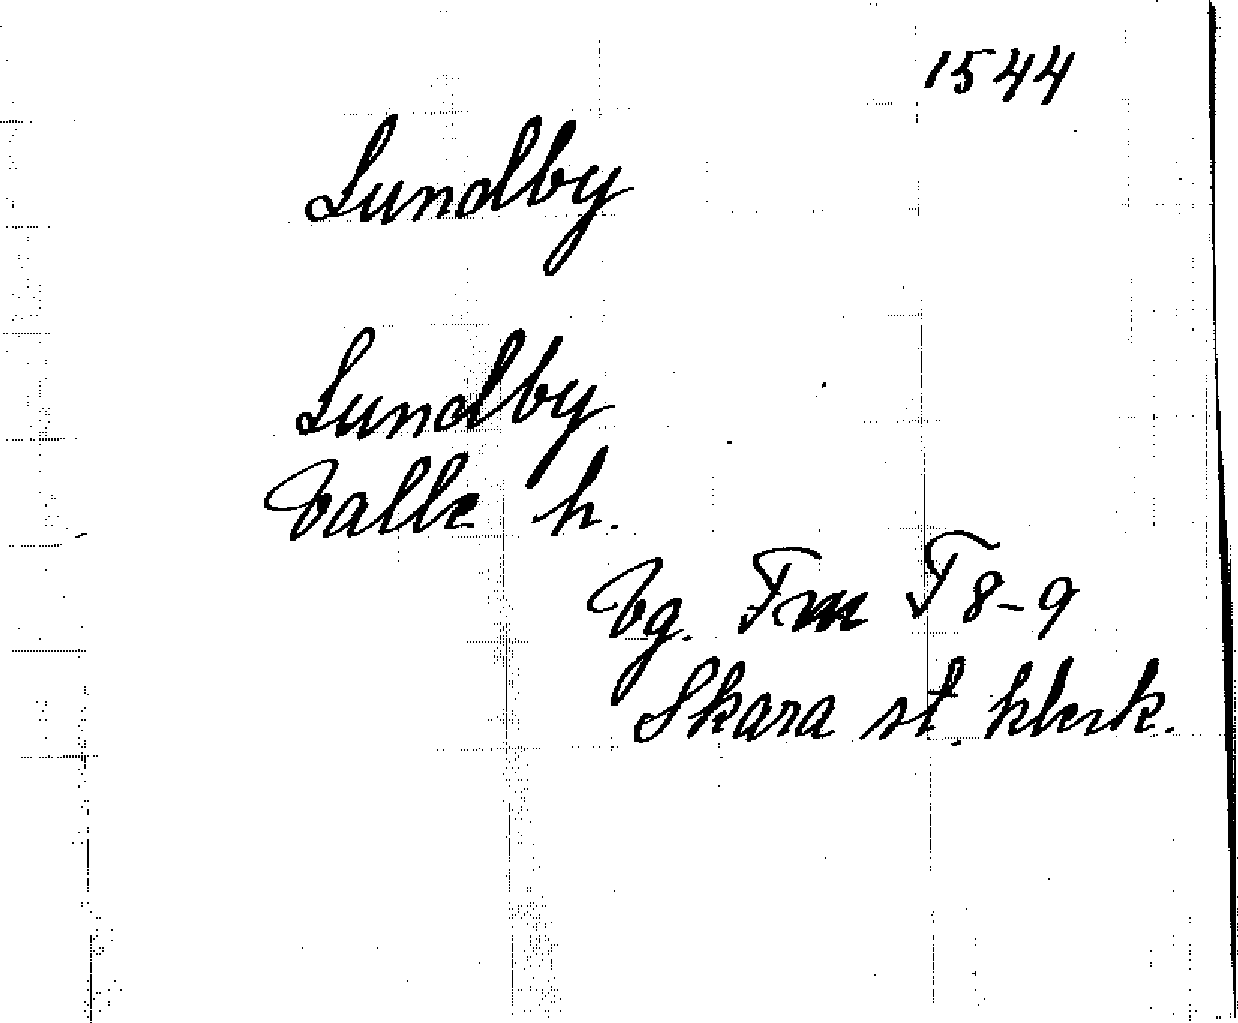 1544
Lundby
Lundby
Valle h.
Vg. Fm T 8-9
Skara st. klerk.